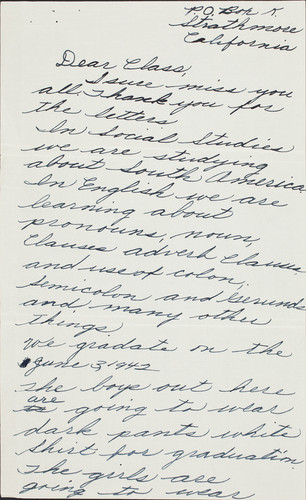 P.O. Box K.
Strathmore
California
Dear Class,
I sure miss you
all. Thank you for
the letters
In Social Studies
we are studying
about South America
In English we are
learning about
pronouns, noun,
Clauses adverb Clauses
and use of colon,
semicolon and Gerunds
and many other
things
we gradate on the
June 3, 1942
The boys out here
are
going to wear
dark pants white
shirt for graduation
The girls are
going to wear